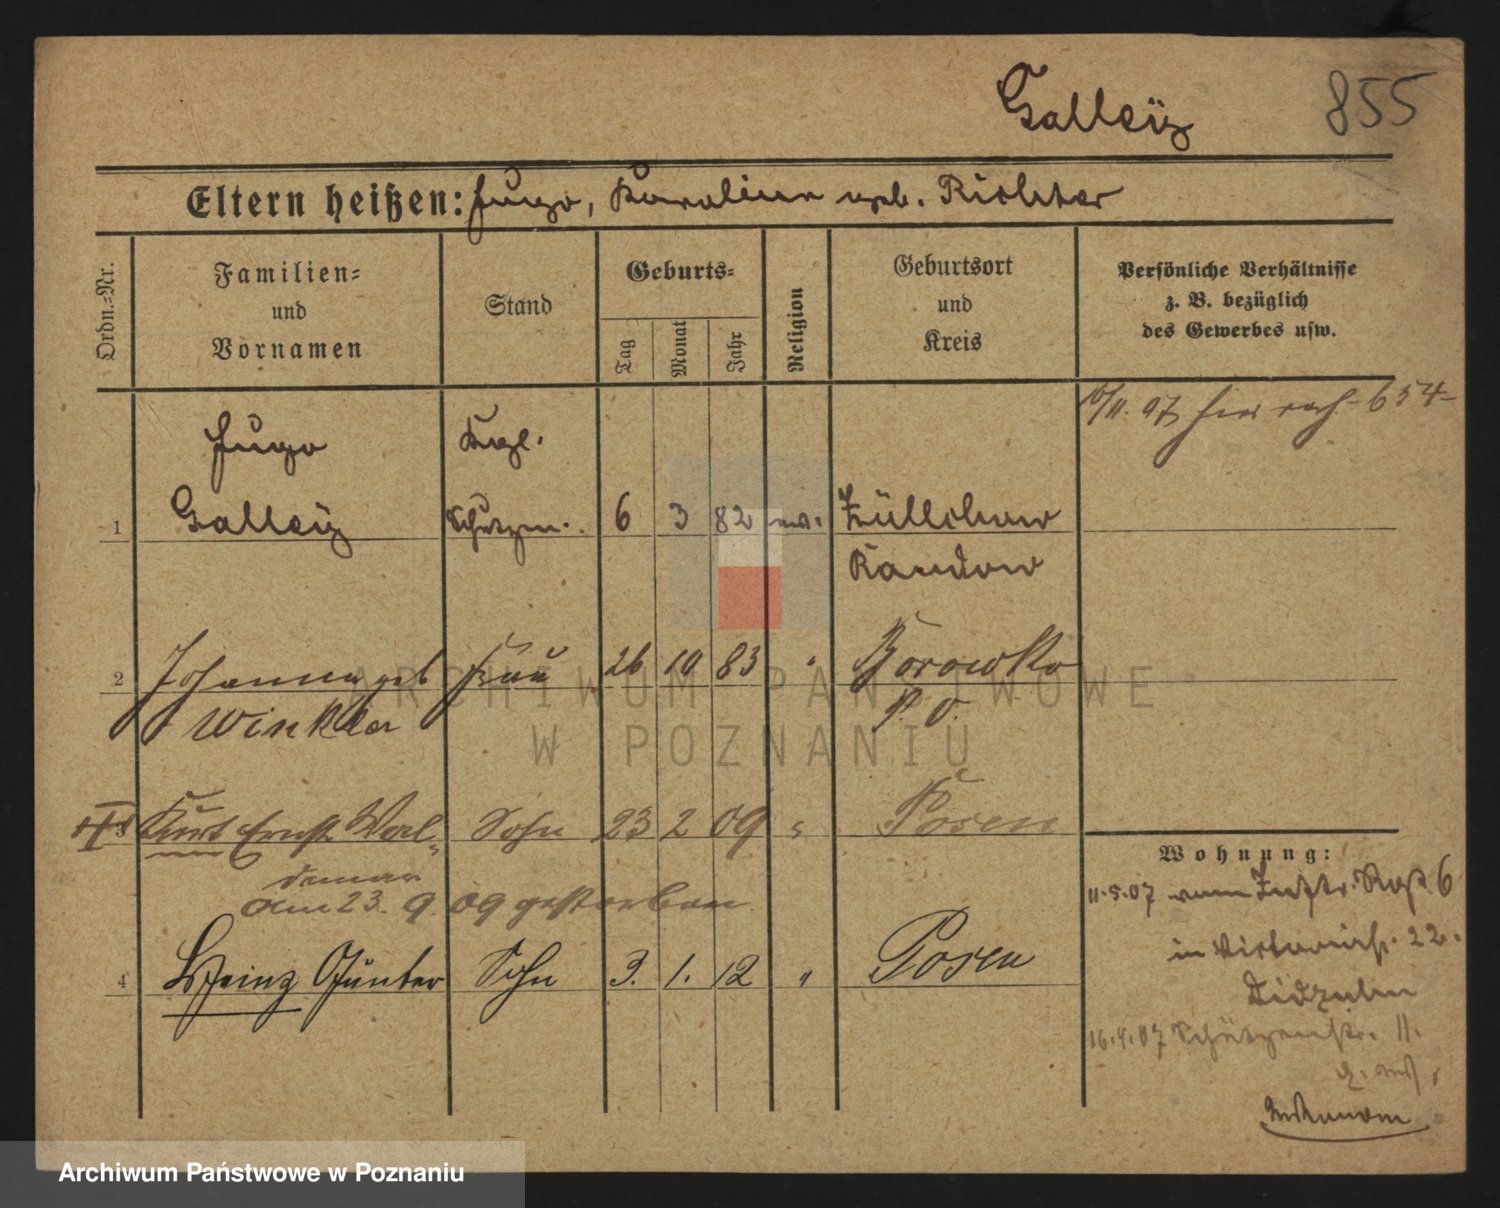 Galleiz
855
Eltern heißen: Hugo, Karoline geb. Richter
Ordn.-Nr.
Familien-
und
Vornamen
Stand
Geburts-
Tag
Monat
Jahr
Religion
Geburtsort
und
Kreis
Persönliche Verhältnisse
z. B. bezüglich
des Gewerbes usw.
07 hier 654
Hugo
1 Galleiz 6 3 82 ev. Züllchow
Randow
2 Johanna geb Frau 26 10 83 " Borowko
Winkler P. O.
3 Kurt Ernst Wal- Sohn 23 2 09 " Posen
demar
am 23. 9. 09 gestorben
4 Heinz Günter Sohn 3. 1. 12 " Posen
Wohnung:
11.5.07 vom 6
in Victoriastr. 22.
16.9.07 Schützenstr. 11.
ARCHIWUM PAŃSTWOWE
W POZNANIU
Archiwum Państwowe w Poznaniu